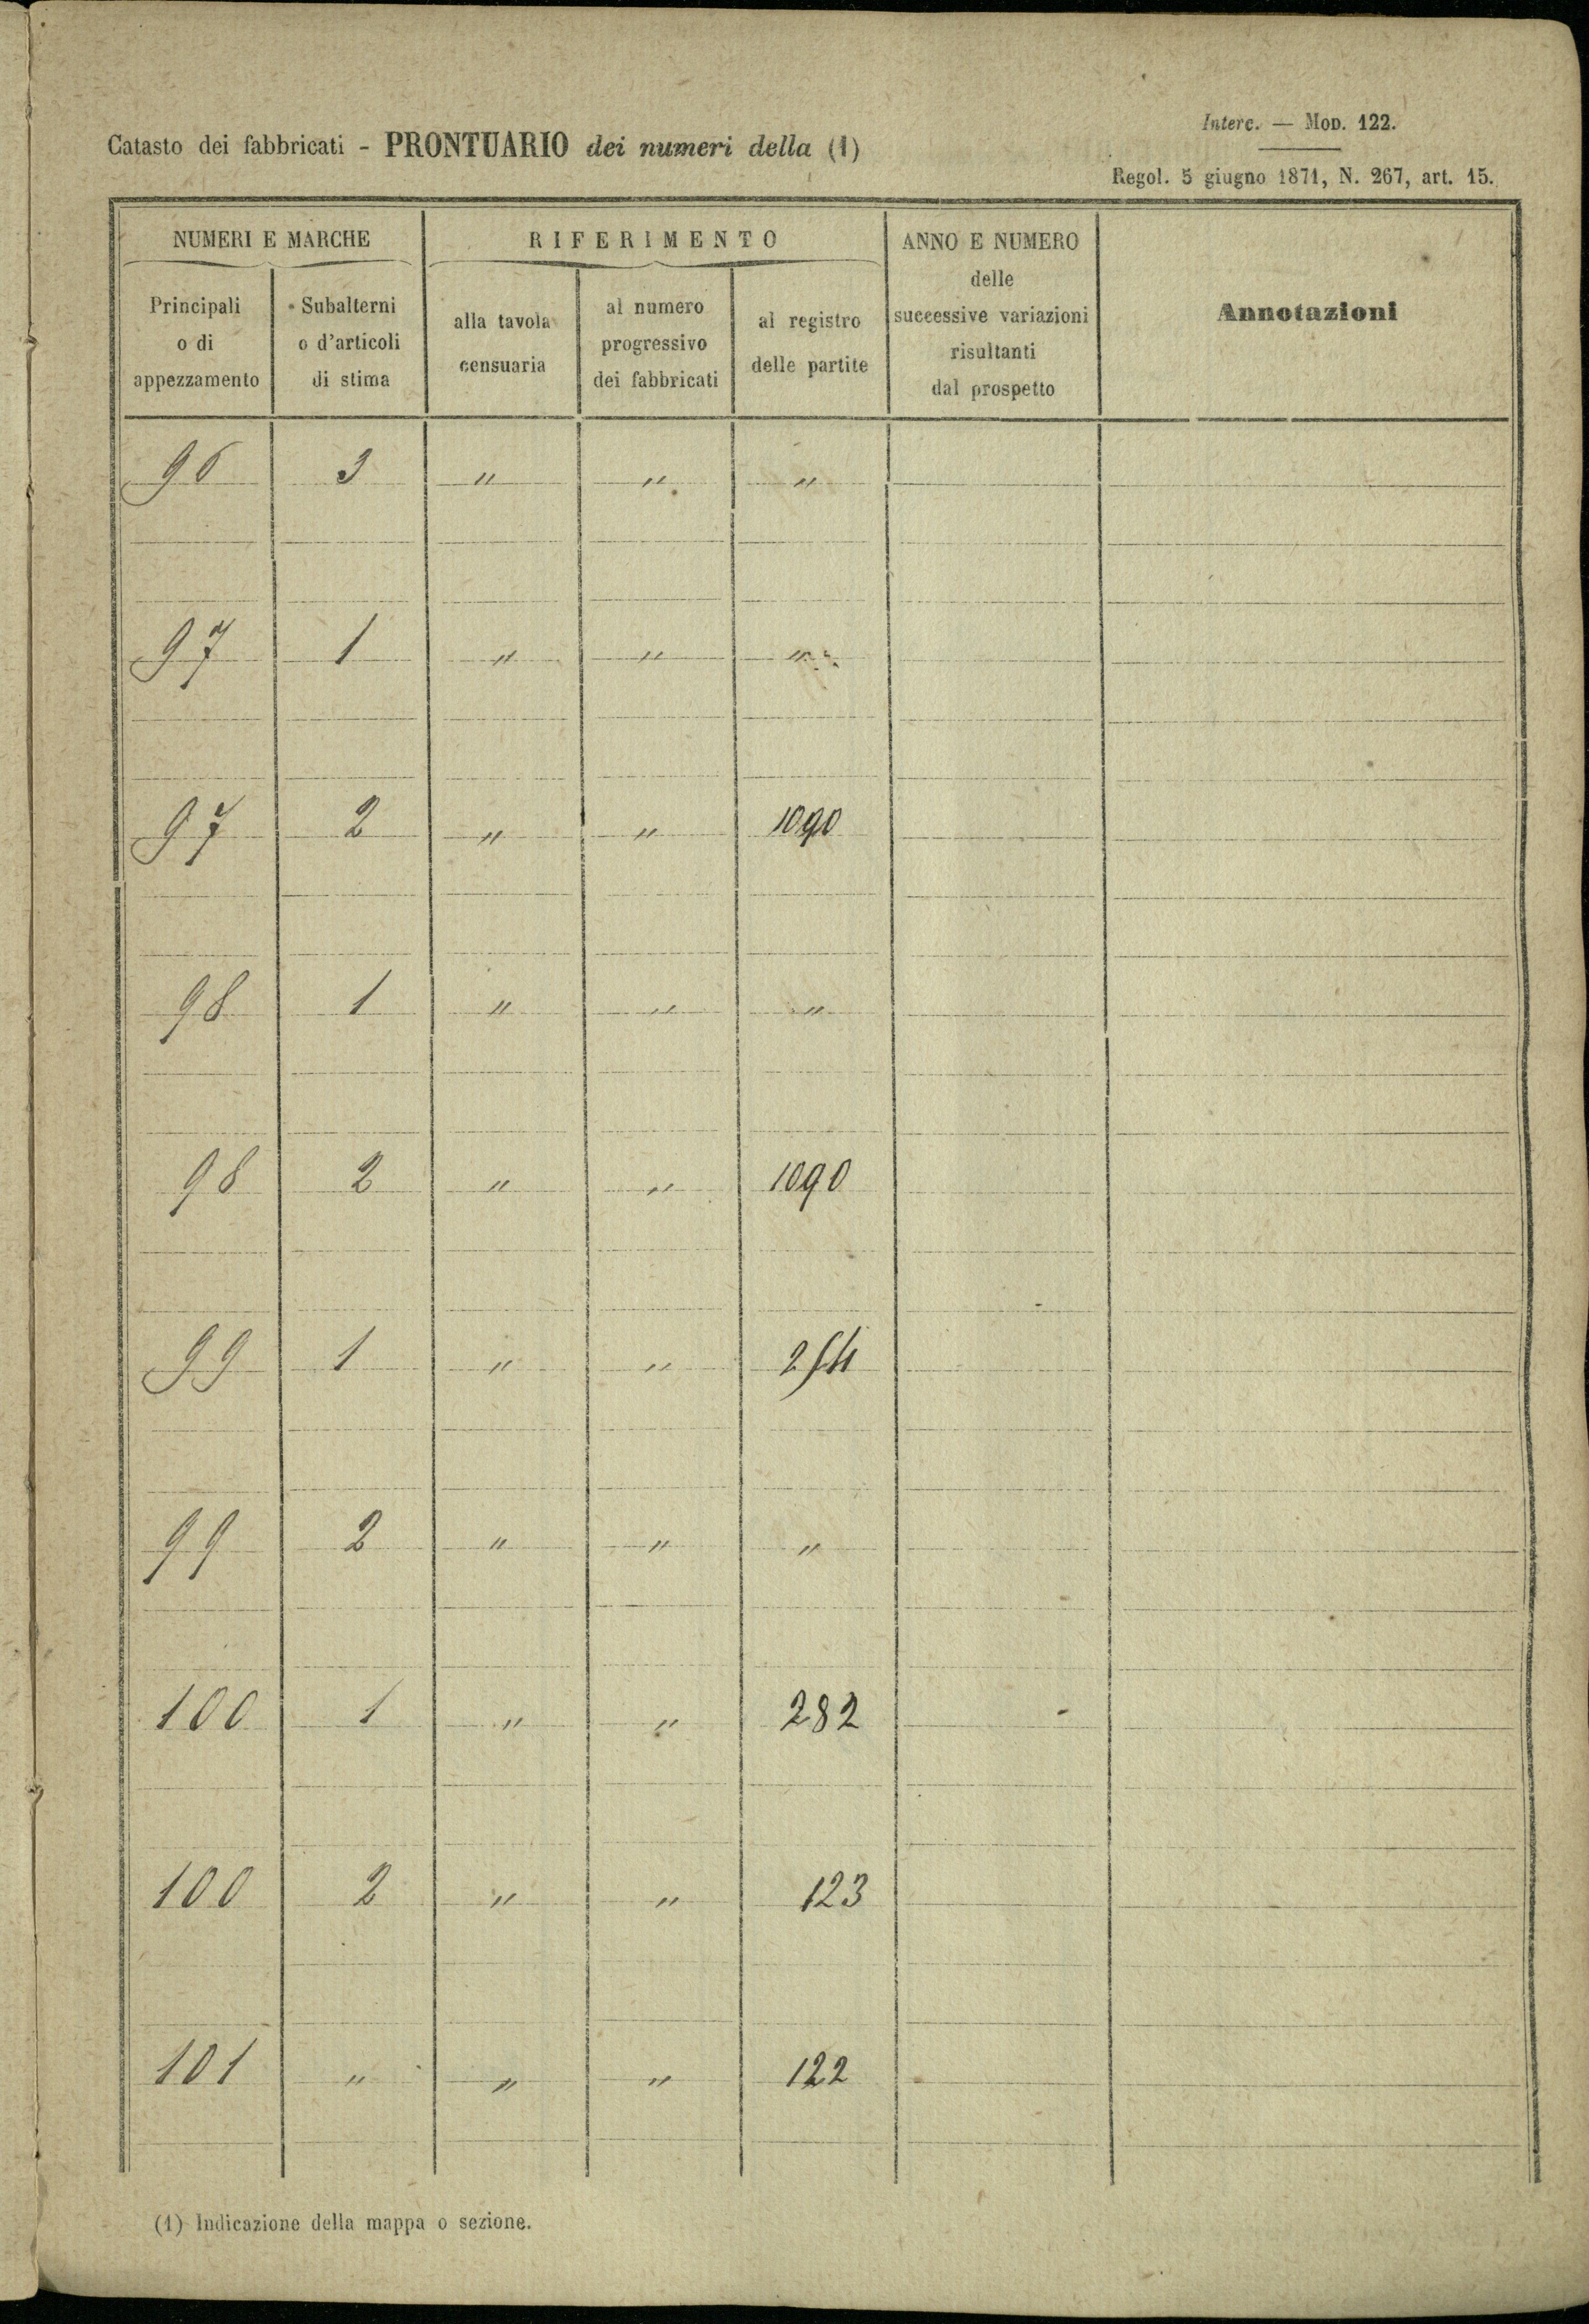 Interc. — Mod. 122.
Catasto dei fabbricati - PRONTUARIO dei numeri della (1)
Regol. 5 giugno 1871, N. 267, art. 15.
NUMERI E MARCHE
RIFERIMENTO
ANNO E NUMERO
delle
successive variazioni
risultanti
dal prospetto
Annotazioni
Principali
o di
appezzamento
Subalterni
o d'articoli
di stima
alla tavola
censuaria
al numero
progressivo
dei fabbricati
al registro
delle partite
96 3 " " "
97 1 " " "
97 2 " " 1090
98 1 " " "
98 2 " " 1090
99 1 " " 254
99 2 " " "
100 1 " " 282
100 2 " " 123
101 " " " 122
(1) Indicazione della mappa o sezione.